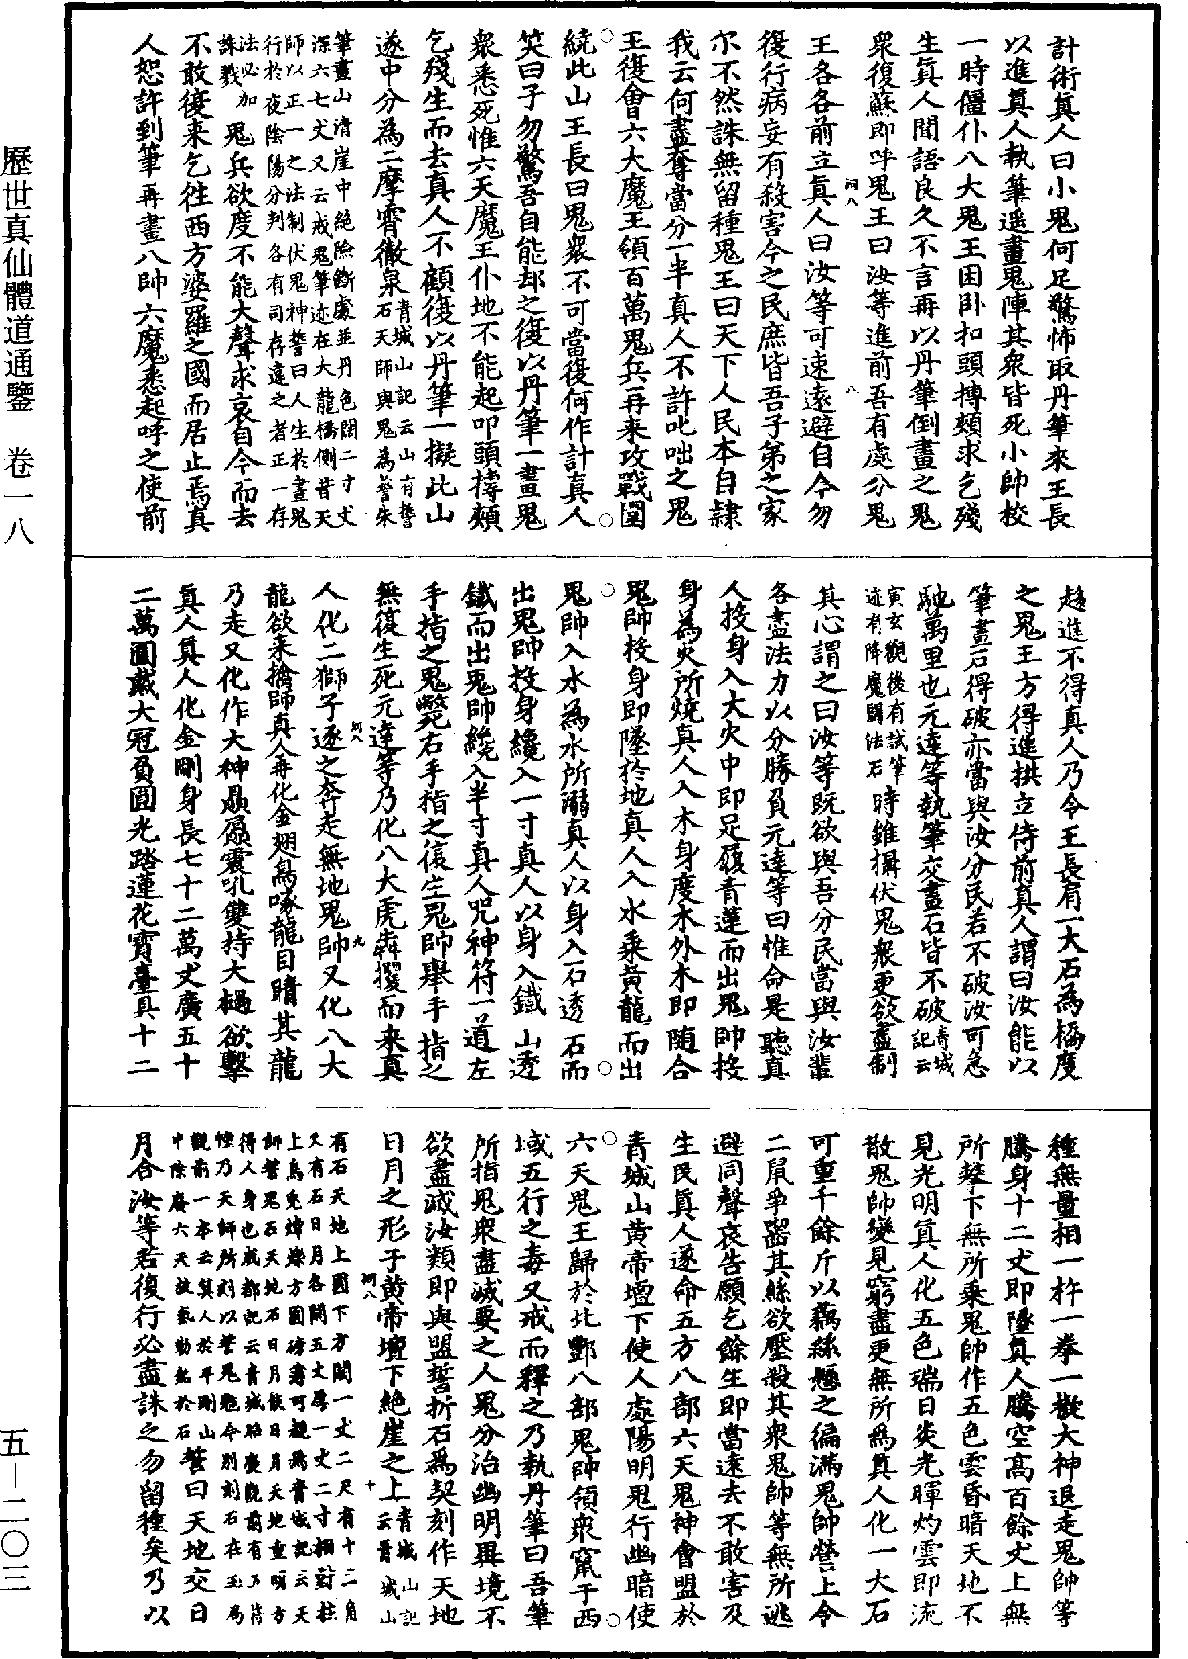 歷世真仙體道通鑒　卷一八
五—二〇三
計術真人曰小鬼何足驚怖取丹筆來王長
以進真人執筆遥畫鬼陣其衆皆死小帥校
一時僵仆八大鬼王困卧扣頭搏頰求乞殘
生真人聞語良久不言再以丹筆倒畫之鬼
衆復蘇即呼鬼王曰汝等進前吾有處分鬼
王各各前立真人曰汝等可速遠避自今勿
復行病妄有殺害今之民庶皆吾子第之家
尔不然誅無留種鬼王曰天下人民本自隸
我云何盡奪當分一半真人不許叱咄之鬼
王復會六大魔王領百萬鬼兵再來攻戰圍
繞此山王長曰鬼衆不可當復何作計真人
笑曰子勿驚吾自能却之復以丹筆一畫鬼
衆悉死惟六天魔王仆地不能起叩頭搏頰
乞殘生而去真人不顧復以丹筆一擬此山
遂中分為二摩霄徹泉青城山記云山有誓石天師與鬼為誓朱
筆畫山清崖中絕險斷處並丹色闊二寸丈
深六七丈又云戒鬼筆迹在大龍橋側昔天
師以正一之法制伏鬼神誓曰人生於晝鬼
行於夜陰陽分判各有司存違之者正一存
法必加誅戮鬼兵欲度不能大聲求哀自今而去
不敢復来乞往西方婆羅之國而居止焉真
人恕許到筆再畫八帥六魔悉起呼之使前
趍進不得真人乃令王長肩一大石為橋度
之鬼王方得進拱立侍前真人謂曰汝能以
筆畫石得破亦當與汝分民若不破汝可急
馳萬里也元達等執筆交畫石皆不破青城記云
寅玄觀後有試筆迹有降魔闘法石時雖攝伏鬼衆更欲盡制
其心謂之曰汝等既欲與吾分民當與汝輩
各盡法力以分勝負元達等曰惟命是聽真
人投身入大火中即足履青蓮而出鬼帥投
身為火所燒真人入木身度木外木即隨合
鬼帥投身即墜於地真人入水乘黄龍而出
鬼帥入水為水所溺真人以身入石透石而
出鬼帥投身纔入一寸真人以身入鐵山透
鐵而出鬼帥纔入半寸真人咒神符一道左
手指之鬼斃右手指之復生鬼帥舉手指之
無復生死元達等乃化八大虎犇攫而来真
人化二獅子逐之奔走無地鬼帥又化八大
龍欲来擒師真人再化金翅鳥啄龍目睛其龍
乃走又化作大神贔屭震吼雙持大樋欲擊
真人真人化金剛身長七十二萬丈廣五十
二萬圍戴大冠負圓光踏蓮花寶臺具十二
種無量相一杵一拳一撒大神退走鬼帥等
騰身十二丈即墜真人騰空高百餘丈上無
所攀下無所乘鬼帥作五色雲昏暗天地不
見光明真人化五色瑞日炎光暉灼雲即流
散鬼帥變見窮盡更無所為真人化一大石
可重千餘斤以藕絲懸之徧滿鬼帥營上令
二鼠爭齧其絲欲壓殺其衆鬼帥等無所逃
避同聲哀告願乞餘生即當遠去不敢害及
生民真人遂命五方八部六天鬼神會盟於
青城山黄帝壇下使人處陽明鬼行幽暗使
六天鬼王歸於北酆八部鬼帥領衆竄于西
域五行之毒又戒而釋之乃執丹筆曰吾筆
所指鬼衆盡滅要之人鬼分治幽明異境不
欲盡滅汝類即與盟誓折石為契刻作天地
日月之形于黄帝壇下絕崖之上青城山記云青城山
有石天地上圓下方闊一丈二尺有十二角
又有石日月各闊五丈厚一丈二寸相對柱
上烏兔煒爍方圓磅礴可觀為青城記云天
師誓鬼石天地石日月俟日月天地重明方
得人身也成都記云青城昭慶觀前有石
幢乃天師所刻以誓鬼魁今別刻石在玉局
觀前一本云真人於平剛山
中除慶六天故氣勒銘於石誓曰天地交日
月合汝等若復行必盡誅之勿留種矣乃以
河八
八
河八
九
河八
十